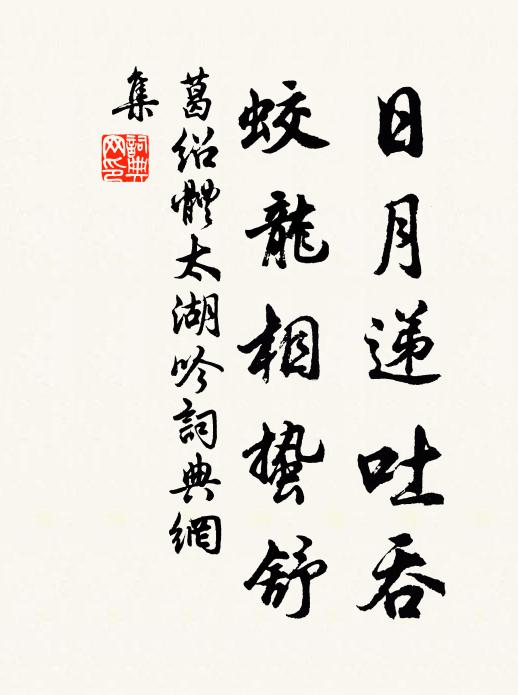 日月递吐吞
蛟龍相蛰舒
葛绍體太湖吟詞典網
集
詞典
网印